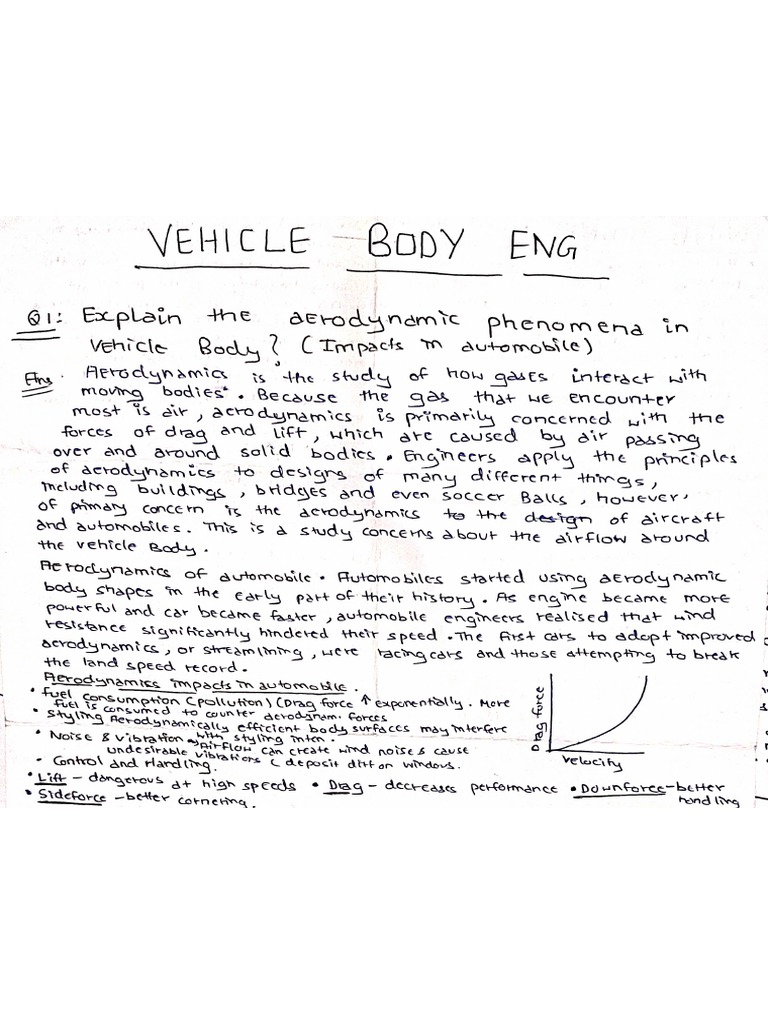 VEHICLE BODY ENG
Q1: Explain the aerodynamic phenomena in
Vehicle Body? (Impacts in automobile)
Ans. Aerodynamics is the study of how gases interact with
moving bodies. Because the gas that we encounter
most is air, aerodynamics is primarily concerned with the
forces of drag and lift, which are caused by air passing
over and around solid bodies. Engineers apply the principles
of aerodynamics to designs of many different things,
including buildings, bridges and even soccer Balls, however,
of primary concern is the aerodynamics to the design of aircraft
and automobiles. This is a study concerns about the airflow around
the vehicle Body.
Aerodynamics of automobile. Automobiles started using aerodynamic
body shapes in the early part of their history. As engine became more
powerful and car became faster, automobile engineers realised that wind
resistance significantly hindered their speed. The first cars to adopt improved
aerodynamics, or streamlining, were racing cars and those attempting to break
the land speed record.
Aerodynamics impacts in automobile.
• fuel consumption (pollution) (Drag force ↑ exponentially. More
fuel is consumed to counter aerodynam. forces
• Styling Aerodynamically efficient body surfaces may interfere
with styling inten.
• Noise & vibration → Airflow can create wind noise & cause
undesirable vibrations (deposit dirt on windows.
• Control and Handling.
• Lift - dangerous at high speeds • Drag - decreases performance • Downforce - better
handling
• Sideforce - better cornering.
Drag force
velocity